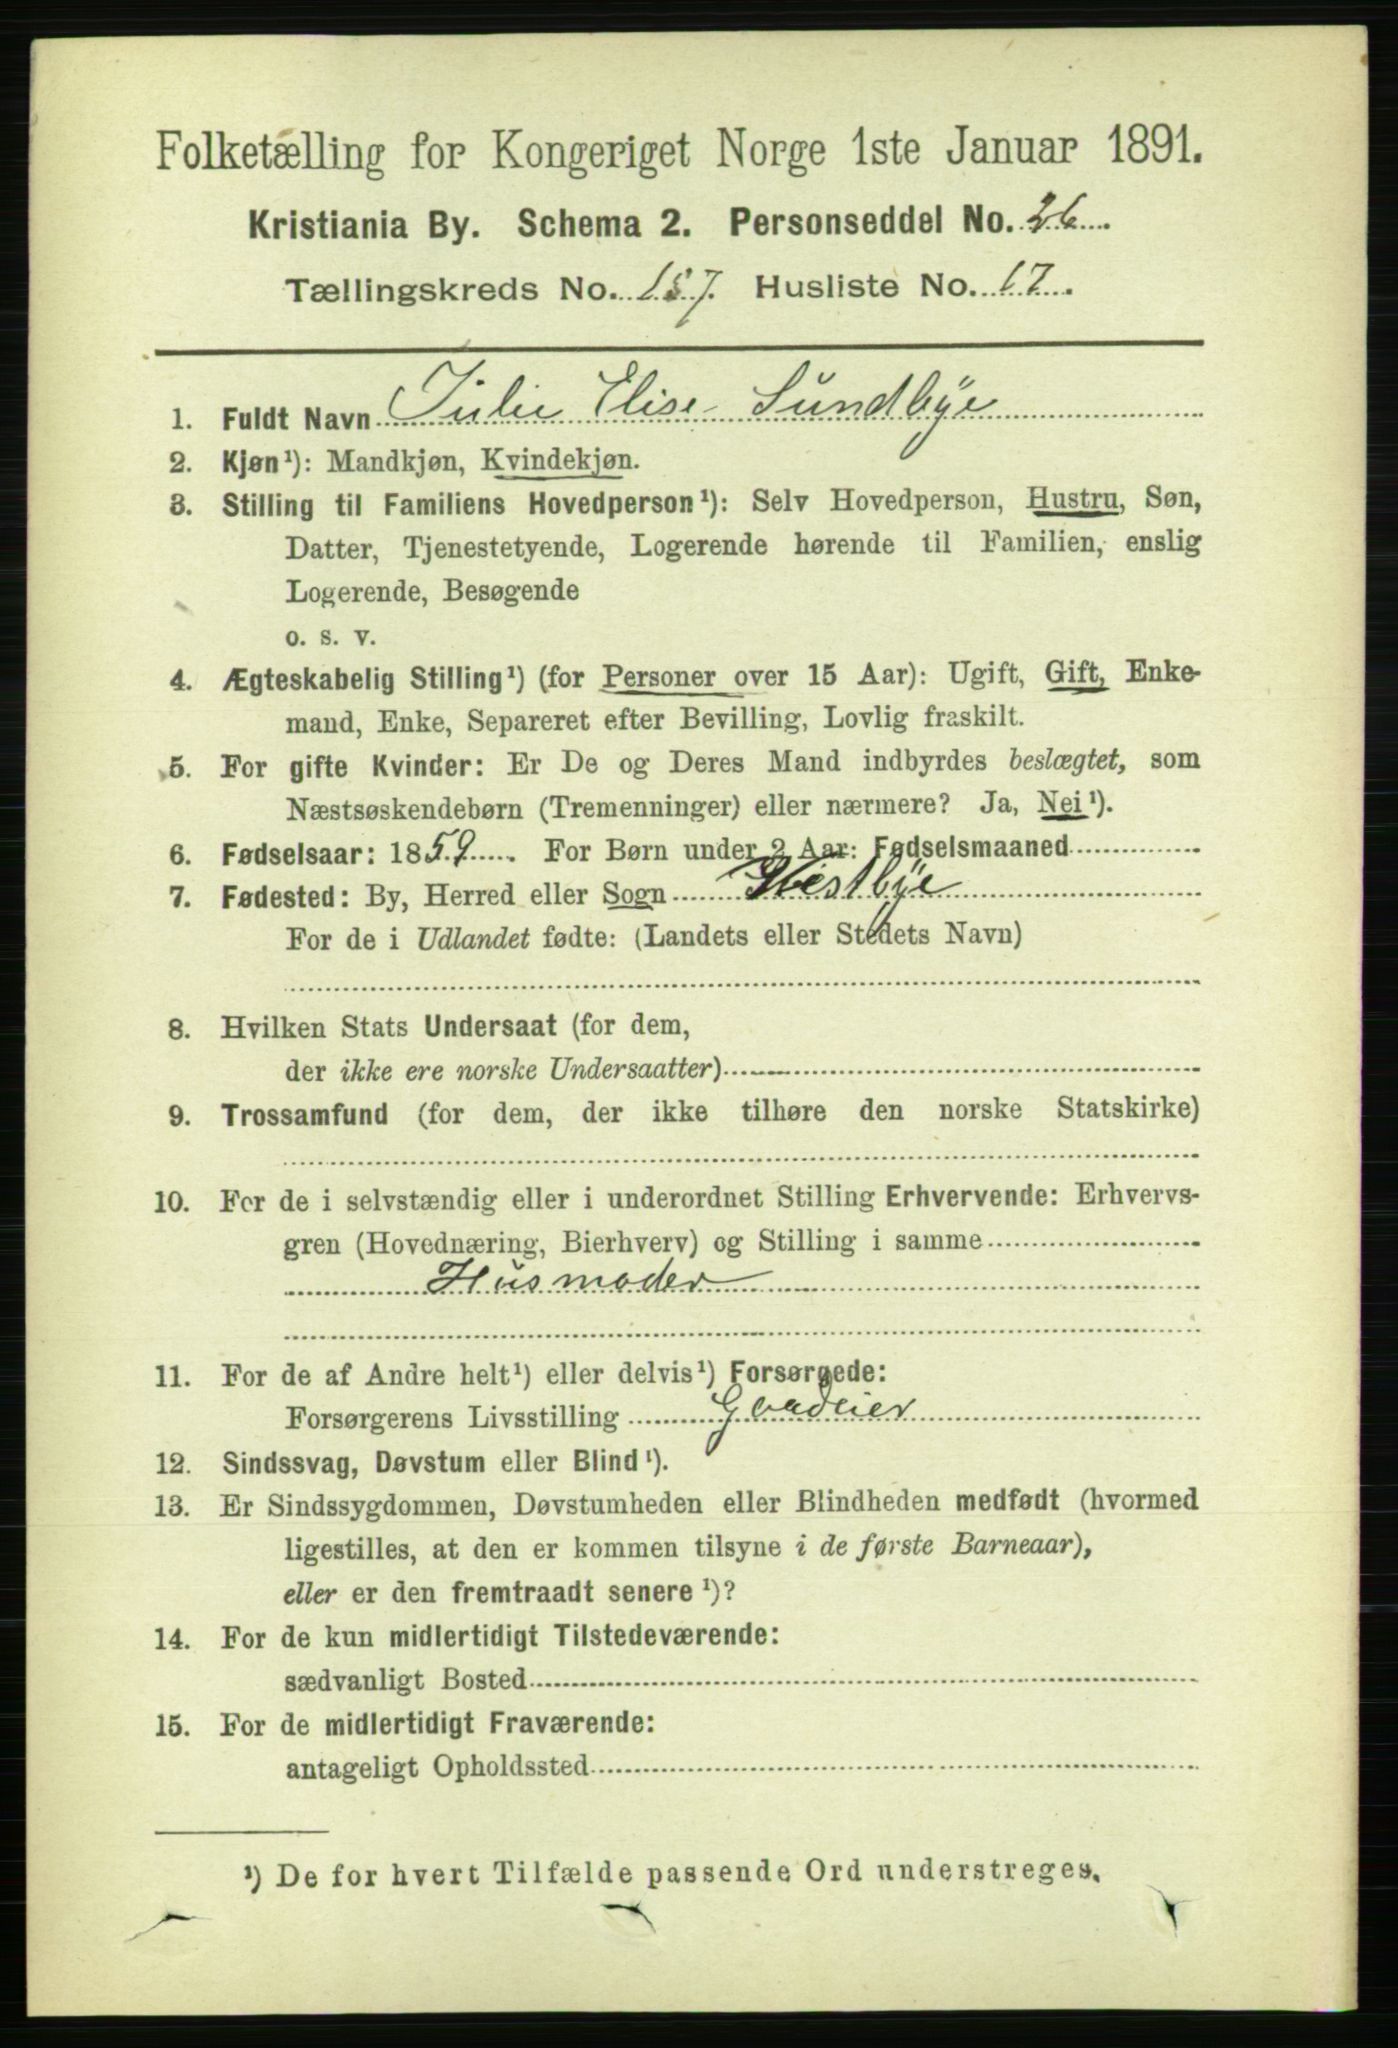 Folketælling for Kongeriget Norge 1ste Januar 1891.
Kristiania By. Schema 2. Personseddel No. 26.
Tællingskreds No. 157. Husliste No. 17.
1. Fuldt Navn Julie Elise Sundbye
2. Kjøn¹): Mandkjøn, Kvindekjøn.
3. Stilling til Familiens Hovedperson¹): Selv Hovedperson, Hustru, Søn,
Datter, Tjenestetyende, Logerende hørende til Familien, enslig
Logerende, Besøgende
o. s. v.
4. Ægteskabelig Stilling¹) (for Personer over 15 Aar): Ugift, Gift, Enke-
mand, Enke, Separeret efter Bevilling, Lovlig fraskilt.
5. For gifte Kvinder: Er De og Deres Mand indbyrdes beslægtet, som
Næstsøskendebørn (Tremenninger) eller nærmere? Ja, Nei¹).
6. Fødselsaar: 1859. For Børn under 2 Aar: Fødselsmaaned
7. Fødested: By, Herred eller Sogn Westbye
For de i Udlandet fødte: (Landets eller Stedets Navn)
8. Hvilken Stats Undersaat (for dem,
der ikke ere norske Undersaatter)
9. Trossamfund (for dem, der ikke tilhøre den norske Statskirke)
10. For de i selvstændig eller i underordnet Stilling Erhvervende: Erhvervs-
gren (Hovednæring, Bierhverv) og Stilling i samme
Husmoder
11. For de af Andre helt¹) eller delvis¹) Forsørgede:
Forsørgerens Livsstilling Gaadeier
12. Sindssvag, Døvstum eller Blind¹).
13. Er Sindssygdommen, Døvstumheden eller Blindheden medfødt (hvormed
ligestilles, at den er kommen tilsyne i de første Barneaar),
eller er den fremtraadt senere¹)?
14. For de kun midlertidigt Tilstedeværende:
sædvanligt Bosted
15. For de midlertidigt Fraværende:
antageligt Opholdssted
¹) De for hvert Tilfælde passende Ord understreges.